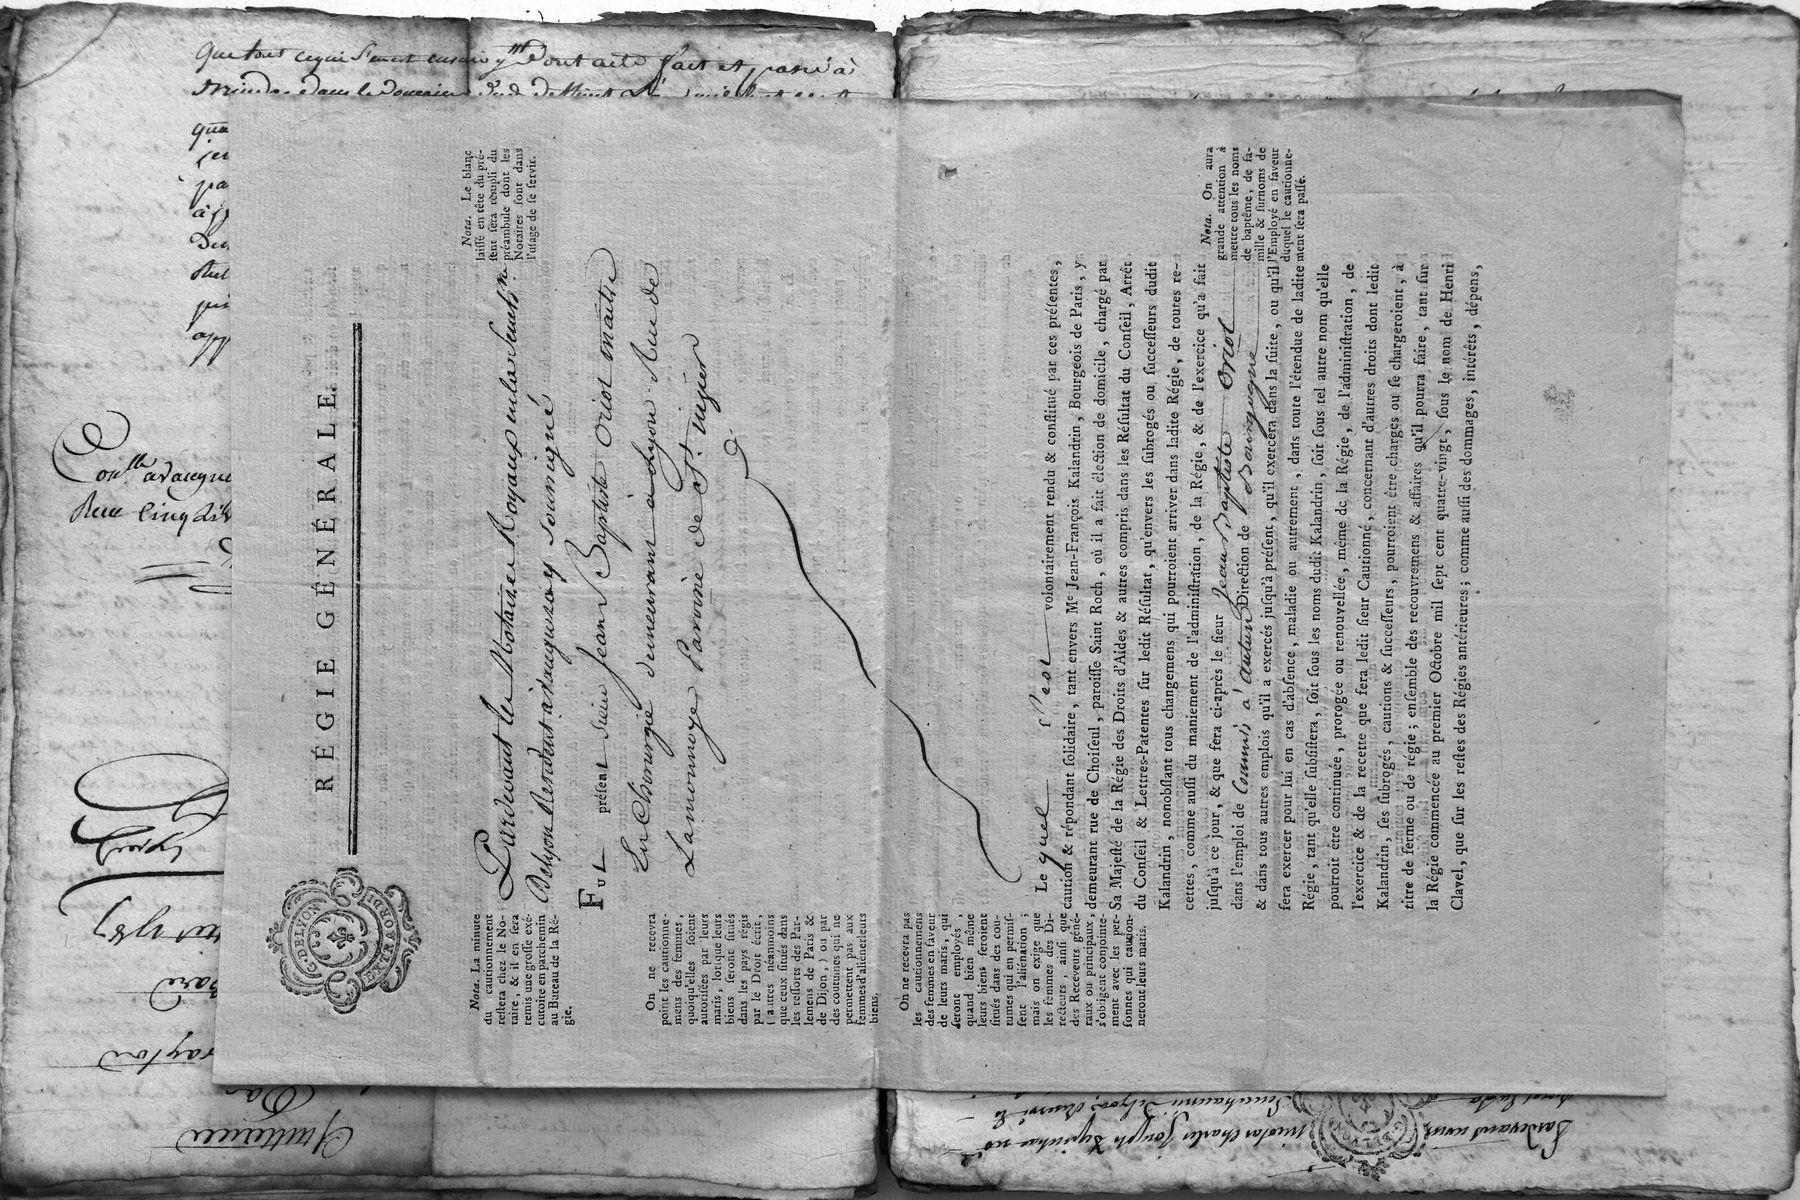 Que tout ce qui
dont acte fait et passé à
RÉGIE GÉNÉRALE.
G. DE LYON
Nota. La minute
du cautionnement
restera chez le No-
taire, & il en sera
remis une grosse exé-
cutoire en parchemin
au Bureau de la Ré-
gie.
Nota. Le blanc
laissé en tête du pré-
sent sera rempli du
préambule dont les
Notaires sont dans
l'usage de se servir.
Pardevant les Notaires Royaux en la
De Lyon Résident à soussigné
FUT présent sieur Jean Baptiste Oriol maitre
En Chirurgie demeurant à Lyon Rue de
Lamonnoye Paroisse de St. nizier
On ne recevra
point les cautionne-
mens des femmes,
quoiqu'elles soient
autorisées par leurs
maris, lorsque leurs
biens seront situés
dans les pays régis
par le Droit écrit,
(autres néanmoins
que ceux situés dans
les ressorts des Par-
lemens de Paris &
de Dijon,) ou par
des coutumes qui ne
permettent pas aux
femmes d'aliéner leurs
biens.
On ne recevra pas
les cautionnemens
des femmes en faveur
de leurs maris, qui
seront employés,
quand bien même
leurs biens seroient
situés dans des cou-
tumes qui en permis-
sent l'aliénation;
mais on exige que
les femmes des Di-
recteurs, ainsi que
des Receveurs géné-
raux ou principaux,
s'obligent conjointe-
ment avec les per-
sonnes qui caution-
neront leurs maris.
Lequel s'est volontairement rendu & constitué par ces présentes,
caution & répondant solidaire, tant envers Me Jean-François Kalandrin, Bourgeois de Paris, y
demeurant rue de Choiseul, paroisse Saint Roch, où il a fait élection de domicile, chargé par
Sa Majesté de la Régie des Droits d'Aides & autres compris dans les Résultat du Conseil, Arrêt
du Conseil & Lettres-Patentes sur ledit Résultat, qu'envers les subrogés ou successeurs dudit
Kalandrin, nonobstant tous changemens qui pourroient arriver dans ladite Régie, de toutes re-
cettes, comme aussi du maniement de l'administration, de la Régie, & de l'exercice qu'a fait
jusqu'à ce jour, & que fera ci-après le sieur Jean Baptiste Oriol
dans l'emploi de Commis à autun Direction de Bourgogne
& dans tous autres emplois qu'il a exercés jusqu'à présent, qu'il exercera dans la suite, ou qu'il
fera exercer pour lui en cas d'absence, maladie ou autrement, dans toute l'étendue de ladite
Régie, tant qu'elle subsistera, soit sous les noms dudit Kalandrin, soit sous tel autre nom qu'elle
pourroit être continuée, prorogée ou renouvellée, même de la Régie, de l'administration, de
l'exercice & de la recette que fera ledit sieur Cautionné, concernant d'autres droits dont ledit
Kalandrin, ses subrogés, cautions & successeurs, pourroient être chargés ou se chargeroient, à
titre de ferme ou de régie; ensemble des recouvremens & affaires qu'il pourra faire, tant sur
la Régie commencée au premier Octobre mil sept cent quatre-vingt, sous le nom de Henri
Clavel, que sur les restes des Régies antérieures; comme aussi des dommages, intérêts, dépens,
Nota. On aura
grande attention à
mettre tous les noms
de baptême, de fa-
mille & surnoms de
l'Employé en faveur
duquel le cautionne-
ment sera passé.
Rue
Pardevant nous
Nicolas Charles Joseph